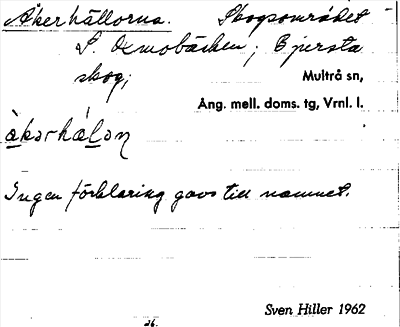 Åkerhällorna. Skogsområdet
S. Ormobäcken; Bjersta
skog;
Multrå sn,
Ång. mell. doms. tg, Vrnl. l.
àkərhä́lən
Ingen förklaring gavs till namnet.
Sven Hiller 1962
26.